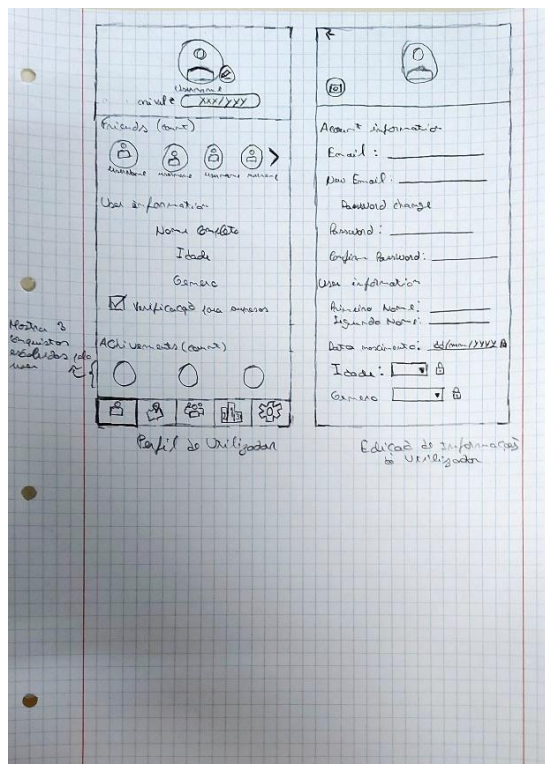 Username
nível XXX/YYY
Friends (count)
username username username username
User information
Nome Completo
Idade
Genero
Verificação para empresas
Mostra 3
conquistas
escolhidas pelo
user
Achivements (count)
Perfil de Utilizador
Account information
Email:
New Email:
Password change
Password:
Confirm Password:
User information
Primeiro Nome:
Segundo Nome:
Data nascimento: dd/mm/YYYY
Idade:
Genero
Edição de Informação
de Utilizador